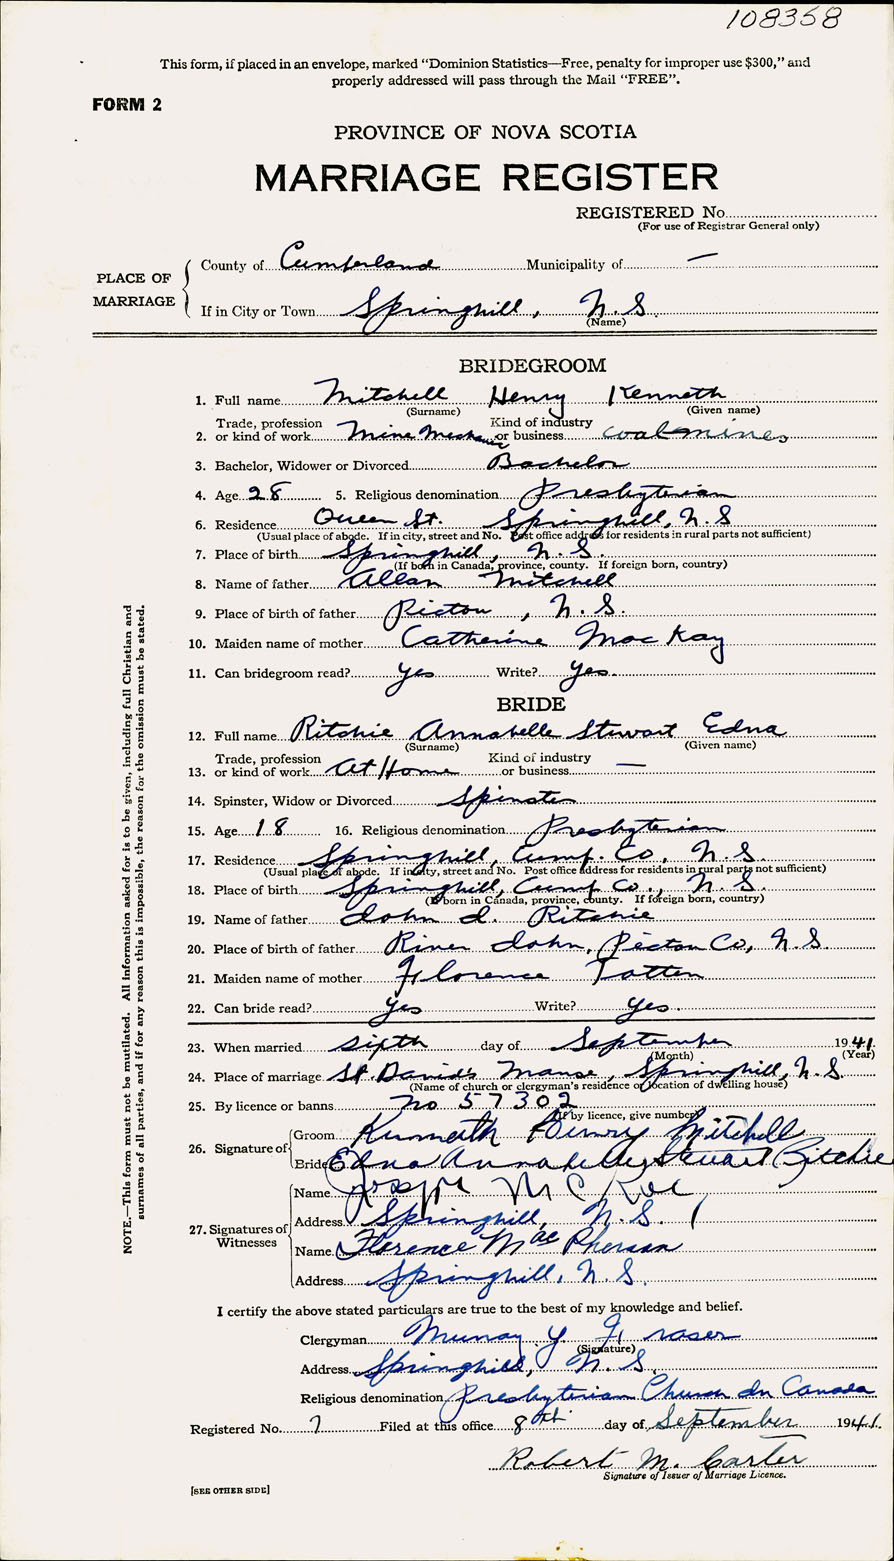 108358
This form, if placed in an envelope, marked “Dominion Statistics—Free, penalty for improper use $300,” and
properly addressed will pass through the Mail “FREE”.
FORM 2
PROVINCE OF NOVA SCOTIA
MARRIAGE REGISTER
REGISTERED No.
(For use of Registrar General only)
PLACE OF MARRIAGE
County of Cumberland Municipality of —
If in City or Town Springhill, N.S.
(Name)
BRIDEGROOM
1. Full name Mitchell Henry Kenneth
(Surname) (Given name)
2. Trade, profession or kind of work Mine Mechanic Kind of industry or business coal mines
3. Bachelor, Widower or Divorced Bachelor
4. Age 28 5. Religious denomination Presbyterian
6. Residence Queen St. Springhill, N.S
(Usual place of abode. If in city, street and No. Post office address for residents in rural parts not sufficient)
7. Place of birth Springhill, N.S.
(If born in Canada, province, county. If foreign born, country)
8. Name of father Allan Mitchell
9. Place of birth of father Picton, N.S.
10. Maiden name of mother Catherine MacKay
11. Can bridegroom read? yes Write? yes.
BRIDE
12. Full name Ritchie Annabelle Stewart Edna
(Surname) (Given name)
13. Trade, profession or kind of work At Home Kind of industry or business —
14. Spinster, Widow or Divorced Spinster
15. Age 18 16. Religious denomination Presbyterian
17. Residence Springhill, Cump. Co, N.S.
(Usual place of abode. If in city, street and No. Post office address for residents in rural parts not sufficient)
18. Place of birth Springhill, Cumf Co., N.S.
(If born in Canada, province, county. If foreign born, country)
19. Name of father John d. Ritchie
20. Place of birth of father River John, Picton Co, N.S.
21. Maiden name of mother Florence Totten
22. Can bride read? yes Write? yes.
23. When married sixth day of September 1941
(Month) (Year)
24. Place of marriage St. David's Manse, Springhill, N.S.
(Name of church or clergyman's residence or location of dwelling house)
25. By licence or banns no 57302
(If by licence, give number)
26. Signature of
Groom Kenneth Henry Mitchell
Bride Edna Annabelle Stewart Ritchie
27. Signatures of Witnesses
Name Joseph
Address Springhill, N.S.
Name Florence MacPherson
Address Springhill, N.S.
I certify the above stated particulars are true to the best of my knowledge and belief.
Clergyman Murray Y. Fraser
(Signature)
Address Springhill, N.S.
Religious denomination Presbyterian Church In Canada
Registered No. 7 Filed at this office 8th day of September 1941.
Robert M. Carter
Signature of Issuer of Marriage Licence.
[SEE OTHER SIDE]
NOTE.—This form must not be mutilated. All information asked for is to be given, including full Christian and
surnames of all parties, and if for any reason this is impossible, the reason for the omission must be stated.